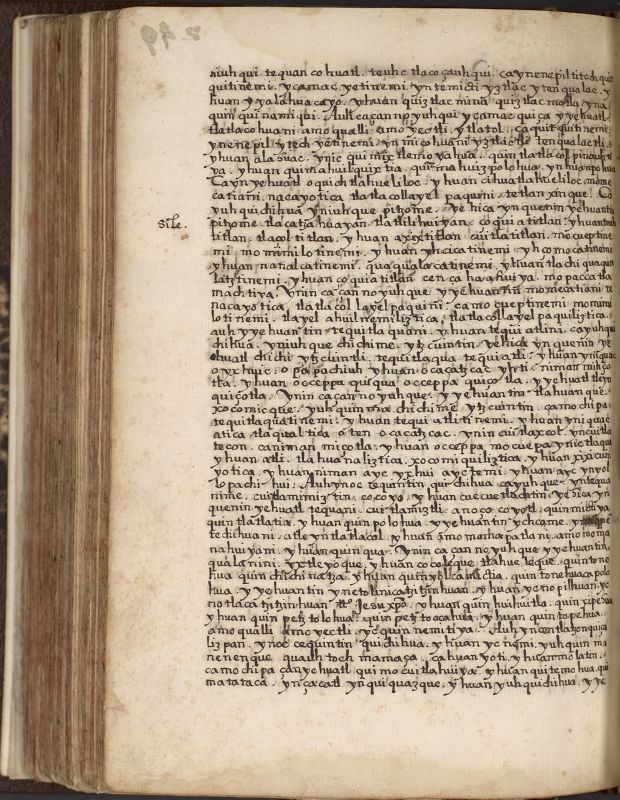 niuh qui tequan cohuatl. teuhc tlacoçauhqui. ca y nenepil titech
quitinemi. yca mac yetinemi. yn temicti yztlac y tenqualac. y
huan y yalahuacayo. yhuan quiztlac mina quiztlac motla. yna
quin quinamiqui. Auh ca çan no yuhqui y camac quiça y yehuatl
tlatlacohuani. amo qualli amo yectli. y tlatol. ca quitquitinemi
ynenepil ytech yetinemi. yn micohuani yztlactli tenqualactli.
yhuan
ya. yhuan
Ca yn yehuatl oquichtlahueliloc. yhuan cihuatlahueliloc. mome
catiani. nacayotica tlatlacollayel paquini. tetlanxinque. Ca
yuh quichihua yn iuhque pitzome. ye hica yn quenin yehuantin
zile. pitzome. tlacaçahuayan. tlatlilihuiyan. çoquiatitlan yhuan
titlan. tlacoltitlan. yhuan axixtitlan cuitlatitlan. mocueptine
mi. momimilotinemi. yhuan yhcicatinemi. yhcomocatinemi
yhuan nanalcatinemi. quaqualacatinemi. yhuan tlachiquaqua
latztinemi. yhuan çoquiatitlan cenca hahuiya. mopacca
machtiya. Ynin ca çan no yuhque. yyehuantin momecatiani te
nacayotica. tlatlacollayel paquini. ca mocueptinemi momimi
lotinemi. tlayelahuilnemiliztica. tlatlacollayel paquiliztica.
auh yyehuantin tequitlaquani. yhuan tequiatlini. ca yuh qui
chihua. yn iuhque chichime. ytzcuintin. ye hica yn quenin ye
ehuatl chichi ytzcuintli. tequitlaqua tequiatli. yhuan yn iquac
oyxhuic. opapachiuh yhuan ocacatzcac yhti. niman miço
tla. yhuan occeppa quiqua occeppa quiçotla. yyehuatl tleyn
quiçotla. Ynin ca çan no yuhque. yyehuantin tlahuanque.
xocomicque. yuhquinma chichime ytzcuintin. ca mochipa.
tequitlaquatinemi. yhuan tequiatlitinemi. yhuan yn iquac
atica tlaqualtica oten ocacatzcac. ynin cuitlaxcol. yn cuitla
tecon. ca niman miçotla. yhuan occeppa mocuepa ynic tlaqua
yhuan atli. tlahuanaliztica. xocomiquiliztica. yhuan xixicuin
yotica. yhuan niman ayc yxhui ayc temi. yhuan ayc yn yol
lo pachihui. Auh ynoc cequintin quichihua ca yuhque yn tequa
nime. cuitlamimiztin. coçoyo. yhuan cuecuetlachtin. ye hica yn
quenin yehuatl tequani. cuitlamiztli. anoço coyotl. quinmictiya
quintlatlatia. yhuan quinpolohua. yyehuantin ychcame.
techihuani. atle yn tlatlacol yhuan amo momapatlani. amo moma
nahuiyani. yhuan quinqua. Ynin ca çan no yuhque yyehuantin
qualanini. yxtleyoque. yhuan cocoleque. tlahueleque. quintone
hua quinchichinatza. yhuan quinyolcamictia. quintonehuacapolo
hua. yyehuantin ynetolinicatzitzinhuan. yhuan yenopilhuan. yc
notlacatzitzinhuan. tto. Jesu xpo. yhuan quinhuihuitla. quinxipehua
yhuan quinpetztolohua. quinpetztocahua. yhuan quintopehua.
amo qualli amo yectli. yc quinnemitiya. Auh yn contlatzonquiça
lizpan. ynoc cequintin quichihua. yhuan yc tiçmi. yuhquinma
nenenque quallhtoch mamaça. cahuanyoti. yhuan molatin.
ca mochipa çan yehuatl. quimocuitlahuiya. yhuan quitemohua. qui
matataca. yn çacatl yn quiquazque. yhuan yuh quichihua. yye